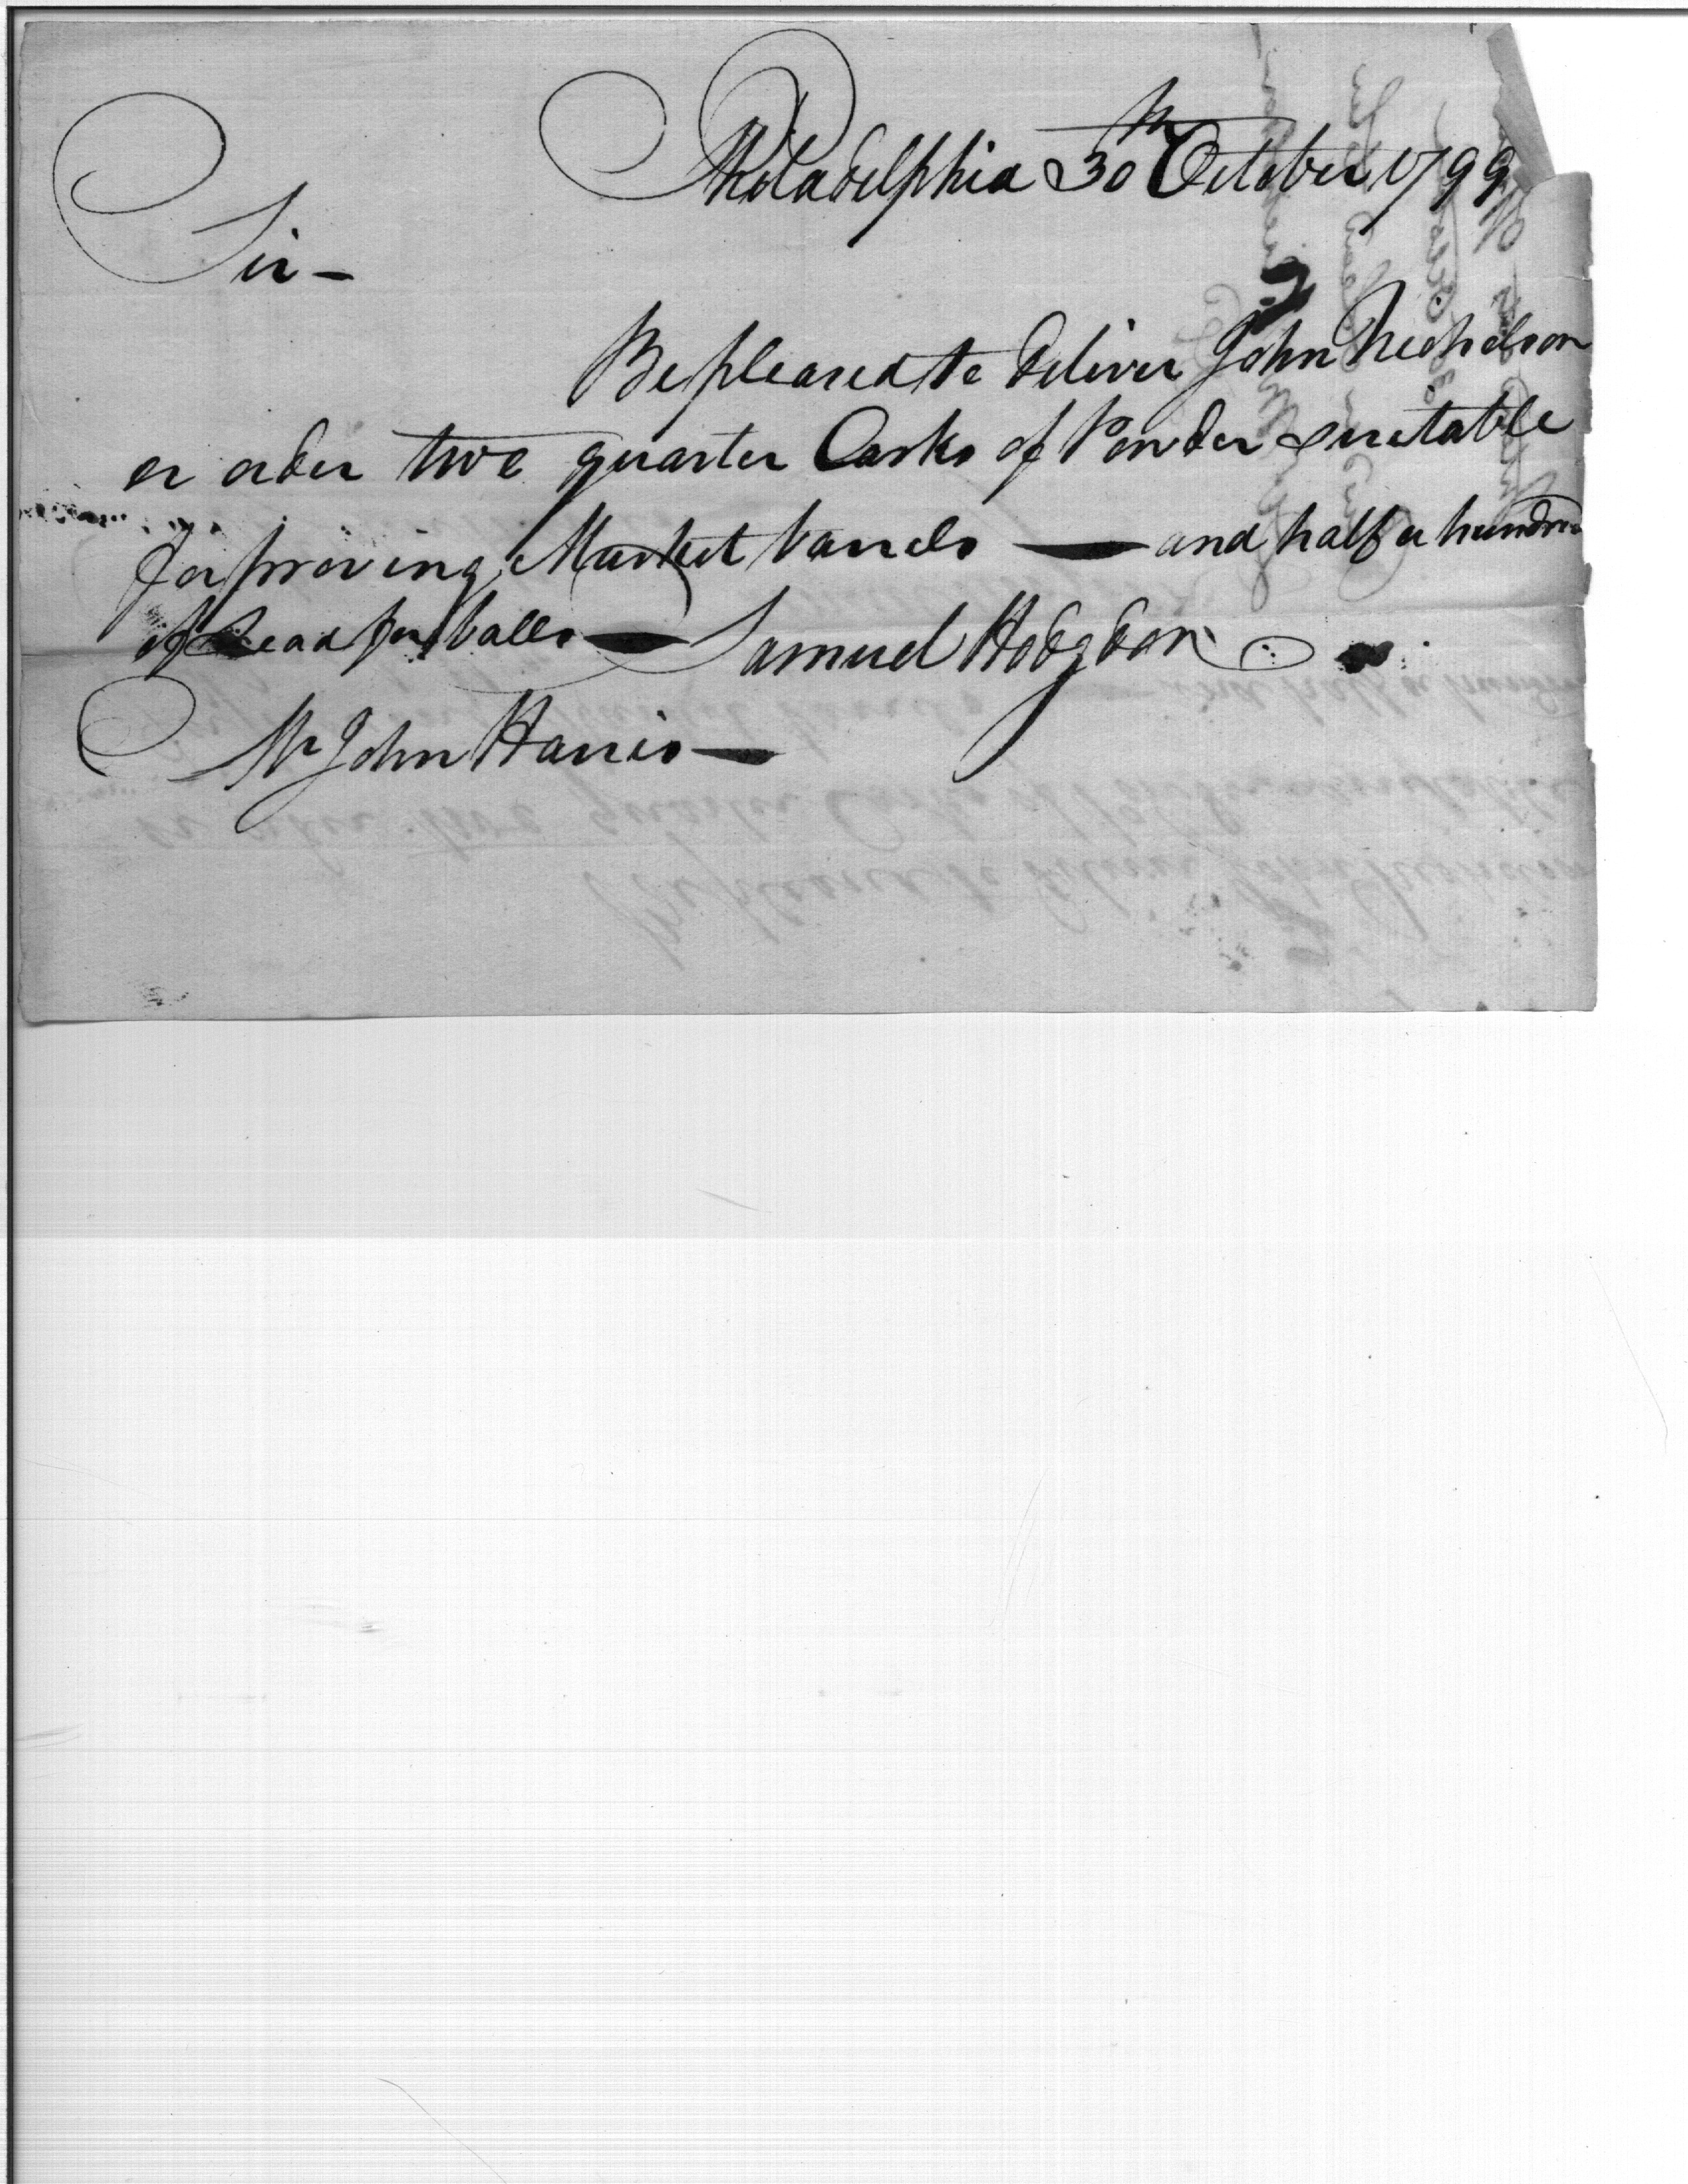 Philadelphia 30th October 1799
Sir -
Be pleased to deliver John Nicholson
or order two quarter Casks of Powder suitable
for proving Musket barrels — and half a hundred
of Lead for balls — Samuel Hodgdon
Mr John Harris —